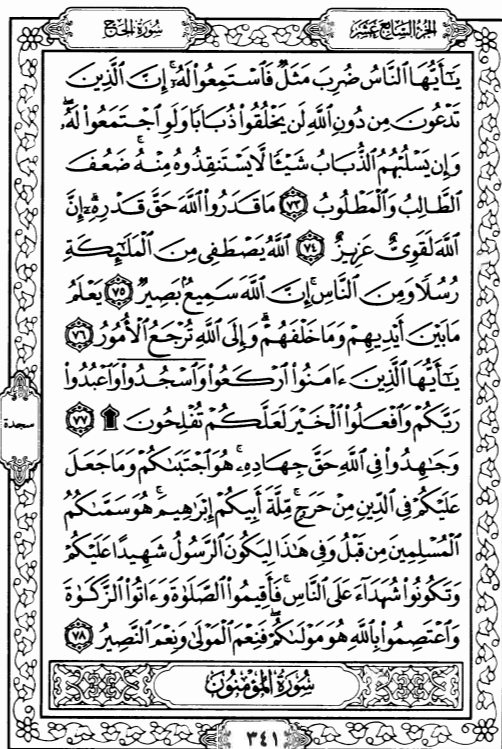 سُورَةُ الحَجّ
الجُزْءُ السَّابِعَ عَشَرَ
يَٰٓأَيُّهَا ٱلنَّاسُ ضُرِبَ مَثَلٌ فَٱسْتَمِعُوا۟ لَهُۥٓ ۚ إِنَّ ٱلَّذِينَ
تَدْعُونَ مِن دُونِ ٱللَّهِ لَن يَخْلُقُوا۟ ذُبَابًا وَلَوِ ٱجْتَمَعُوا۟ لَهُۥ ۖ
وَإِن يَسْلُبْهُمُ ٱلذُّبَابُ شَيْـًٔا لَّا يَسْتَنقِذُوهُ مِنْهُ ۚ ضَعُفَ
ٱلطَّالِبُ وَٱلْمَطْلُوبُ ٧٣ مَا قَدَرُوا۟ ٱللَّهَ حَقَّ قَدْرِهِۦٓ ۗ إِنَّ
ٱللَّهَ لَقَوِىٌّ عَزِيزٌ ٧٤ ٱللَّهُ يَصْطَفِى مِنَ ٱلْمَلَٰٓئِكَةِ
رُسُلًا وَمِنَ ٱلنَّاسِ ۚ إِنَّ ٱللَّهَ سَمِيعٌۢ بَصِيرٌ ٧٥ يَعْلَمُ
مَا بَيْنَ أَيْدِيهِمْ وَمَا خَلْفَهُمْ ۗ وَإِلَى ٱللَّهِ تُرْجَعُ ٱلْأُمُورُ ٧٦
يَٰٓأَيُّهَا ٱلَّذِينَ ءَامَنُوا۟ ٱرْكَعُوا۟ وَٱسْجُدُوا۟ وَٱعْبُدُوا۟
رَبَّكُمْ وَٱفْعَلُوا۟ ٱلْخَيْرَ لَعَلَّكُمْ تُفْلِحُونَ ۩ ٧٧
سجدة
وَجَٰهِدُوا۟ فِى ٱللَّهِ حَقَّ جِهَادِهِۦ ۚ هُوَ ٱجْتَبَىٰكُمْ وَمَا جَعَلَ
عَلَيْكُمْ فِى ٱلدِّينِ مِنْ حَرَجٍ ۚ مِّلَّةَ أَبِيكُمْ إِبْرَٰهِيمَ ۚ هُوَ سَمَّىٰكُمُ
ٱلْمُسْلِمِينَ مِن قَبْلُ وَفِى هَٰذَا لِيَكُونَ ٱلرَّسُولُ شَهِيدًا عَلَيْكُمْ
وَتَكُونُوا۟ شُهَدَآءَ عَلَى ٱلنَّاسِ ۚ فَأَقِيمُوا۟ ٱلصَّلَوٰةَ وَءَاتُوا۟ ٱلزَّكَوٰةَ
وَٱعْتَصِمُوا۟ بِٱللَّهِ هُوَ مَوْلَىٰكُمْ ۖ فَنِعْمَ ٱلْمَوْلَىٰ وَنِعْمَ ٱلنَّصِيرُ ٧٨
سُورَةُ المُؤْمِنُونَ
٣٤١